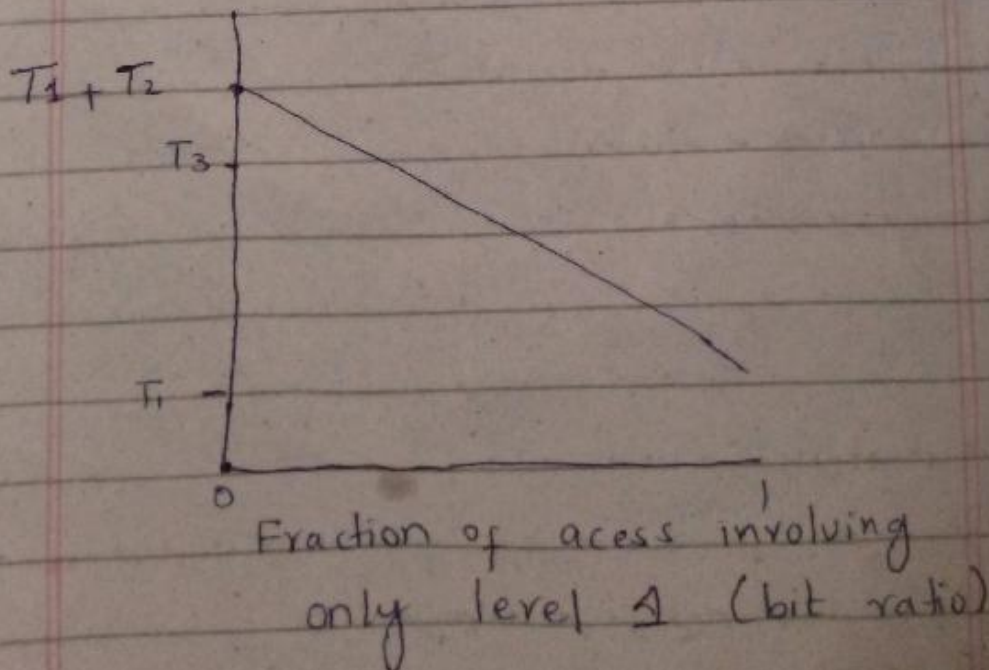 T1 + T2
T3
T1
0
1
Fraction of acess involving
only level 1 (bit ratio)